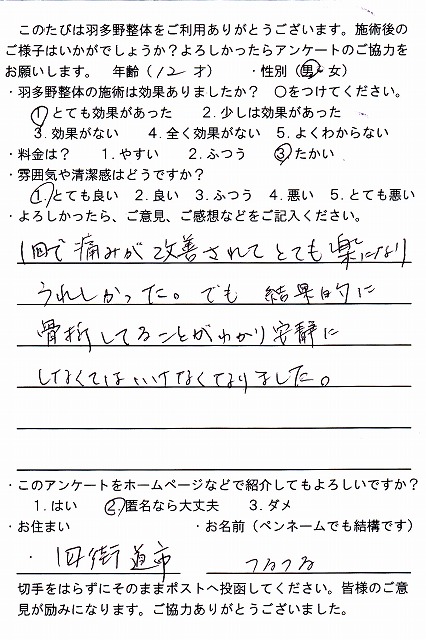 このたびは羽多野整体をご利用ありがとうございます。施術後の
ご様子はいかがでしょうか？よろしかったらアンケートのご協力を
お願いします。 年齢（12 才） ・性別（男・女）
・羽多野整体の施術は効果ありましたか？ ○をつけてください。
1.とても効果があった 2.少しは効果があった
3.効果がない 4.全く効果がない 5.よくわからない
・料金は？ 1.やすい 2.ふつう 3.たかい
・雰囲気や清潔感はどうですか？
1.とても良い 2.良い 3.ふつう 4.悪い 5.とても悪い
・よろしかったら、ご意見、ご感想などをご記入ください。
1回で痛みが改善されてとても楽になり
うれしかった。でも 結果的に
骨折してることがわかり安静に
しなくてはいけなくなりました。
・このアンケートをホームページなどで紹介してもよろしいですか？
1.はい 2.匿名なら大丈夫 3.ダメ
・お住まい ・お名前（ペンネームでも結構です）
・ 四街道市 つるつる
切手をはらずにそのままポストへ投函してください。皆様のご意
見が励みになります。ご協力ありがとうございました。